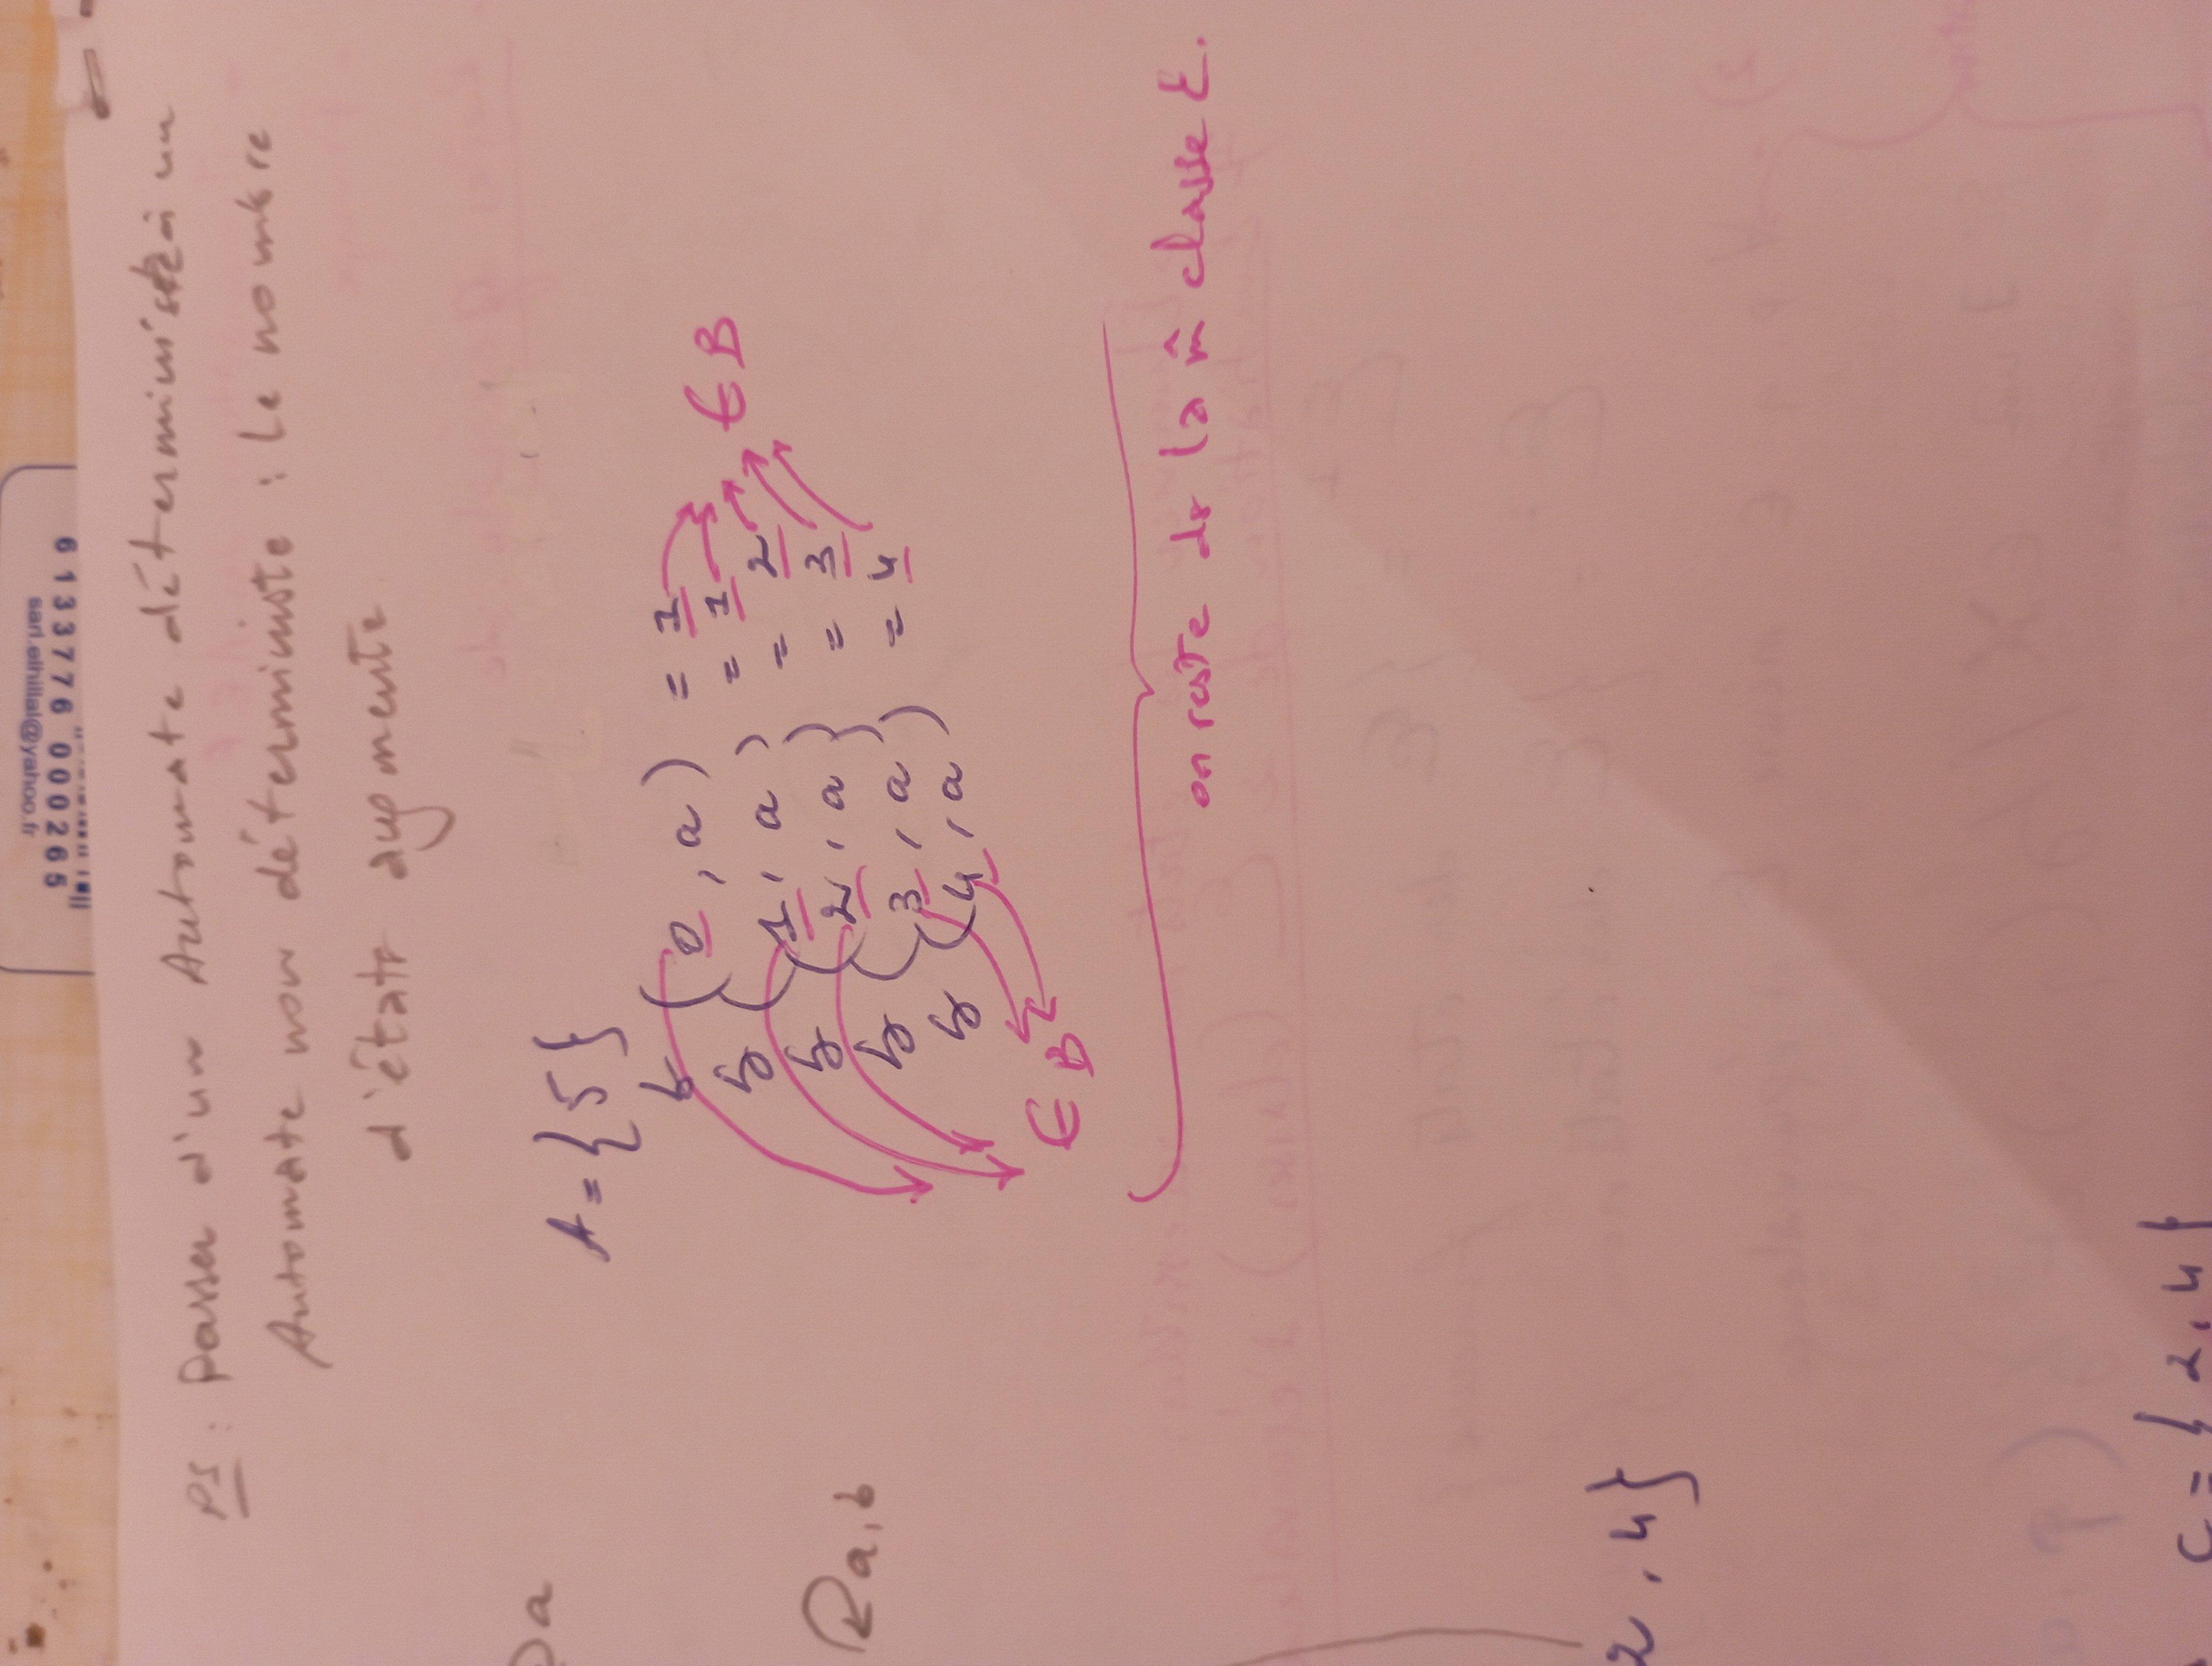 sarl.elhillal@yahoo.fr
6 133776 000265
PS : Passer d'un Automate déterministe à un
Automate non déterministe : Le nombre
d'états augmente
a
A = {5}
δ (0, a) = 1
δ (1, a) = 1
δ (2, a} = 2
δ (3, a) = 3
δ (4, a) = 4
∈ B
a, b
∈ B
on reste ds la m̂ classe E.
2, 4}
C = {2, 4}